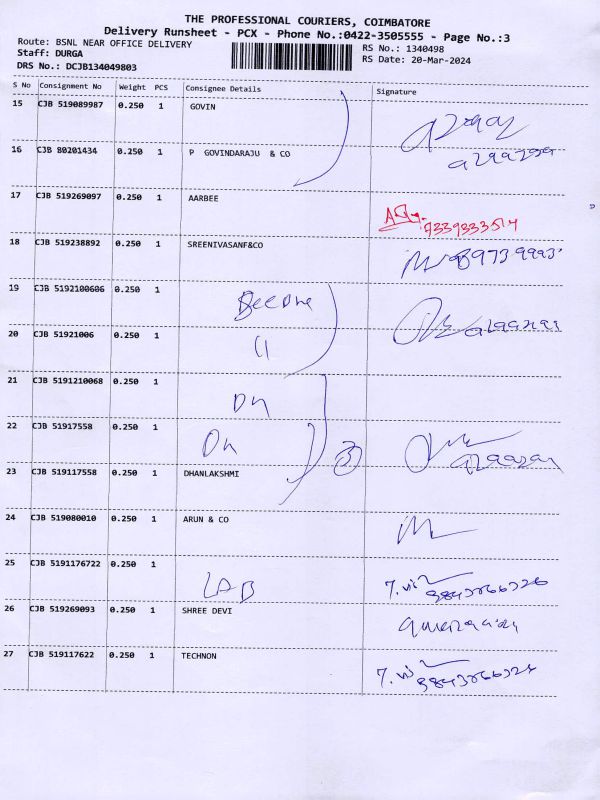 THE PROFESSIONAL COURIERS, COIMBATORE
Delivery Runsheet - PCX - Phone No.:0422-3505555 - Page No.:3
Route: BSNL NEAR OFFICE DELIVERY
RS No.: 1340498
Staff: DURGA
RS Date: 20-Mar-2024
DRS No.: DCJB134049803
S No Consignment No Weight PCS Consignee Details Signature
15 CJB 519089987 0.250 1 GOVIN
16 CJB 80201434 0.250 1 P GOVINDARAJU & CO
17 CJB 519269097 0.250 1 AARBEE
18 CJB 519238892 0.250 1 SREENIVASANF&CO
19 CJB 5192100606 0.250 1
20 CJB 51921006 0.250 1 11
21 CJB 5191210068 0.250 1 DH
22 CJB 51917558 0.250 1 DH
23 CJB 519117558 0.250 1 DHANLAKSHMI
24 CJB 519080010 0.250 1 ARUN & CO
25 CJB 5191176722 0.250 1 LAB
26 CJB 519269093 0.250 1 SHREE DEVI
27 CJB 519117622 0.250 1 TECHNON